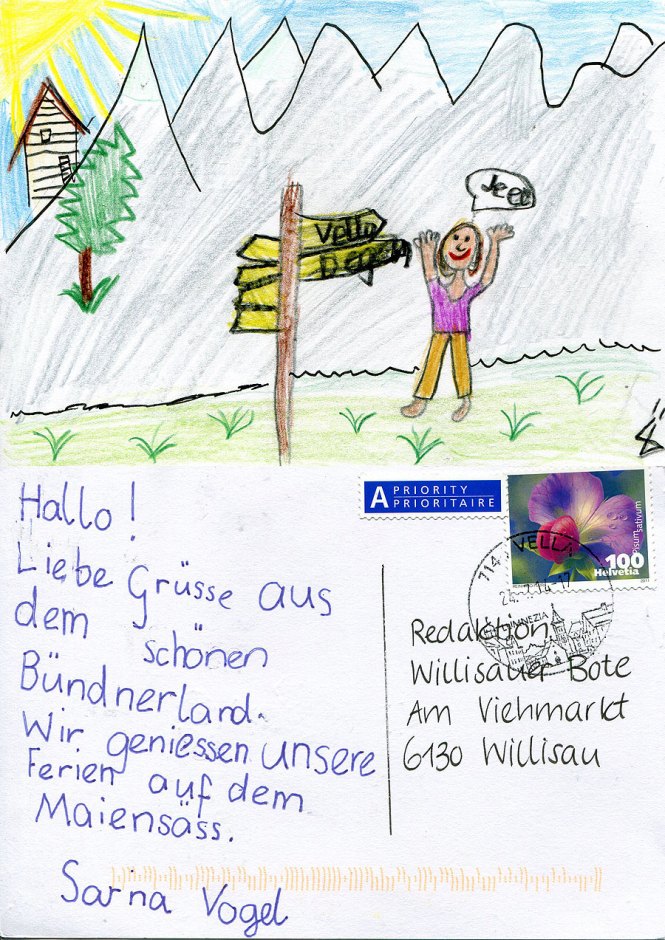 Jeee
Vella
Hallo!
Liebe Grüsse aus
dem schönen
Bündnerland.
Wir geniessen unsere
Ferien auf dem
Maiensäss.
Sarna Vogel
A PRIORITY
PRIORITAIRE
Pisum sativum
100
Helvetia
VELLA
Redaktion
Willisauer Bote
Am Viehmarkt
6130 Willisau